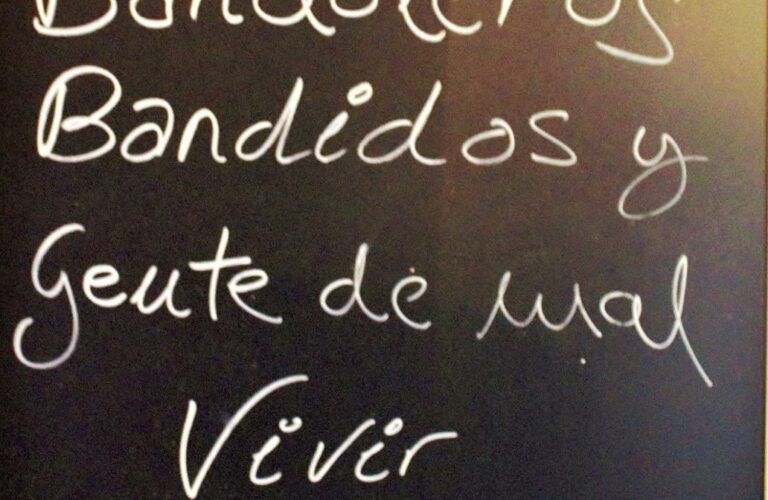 Bandoleros,
Bandidos y
Gente de mal
Vivir